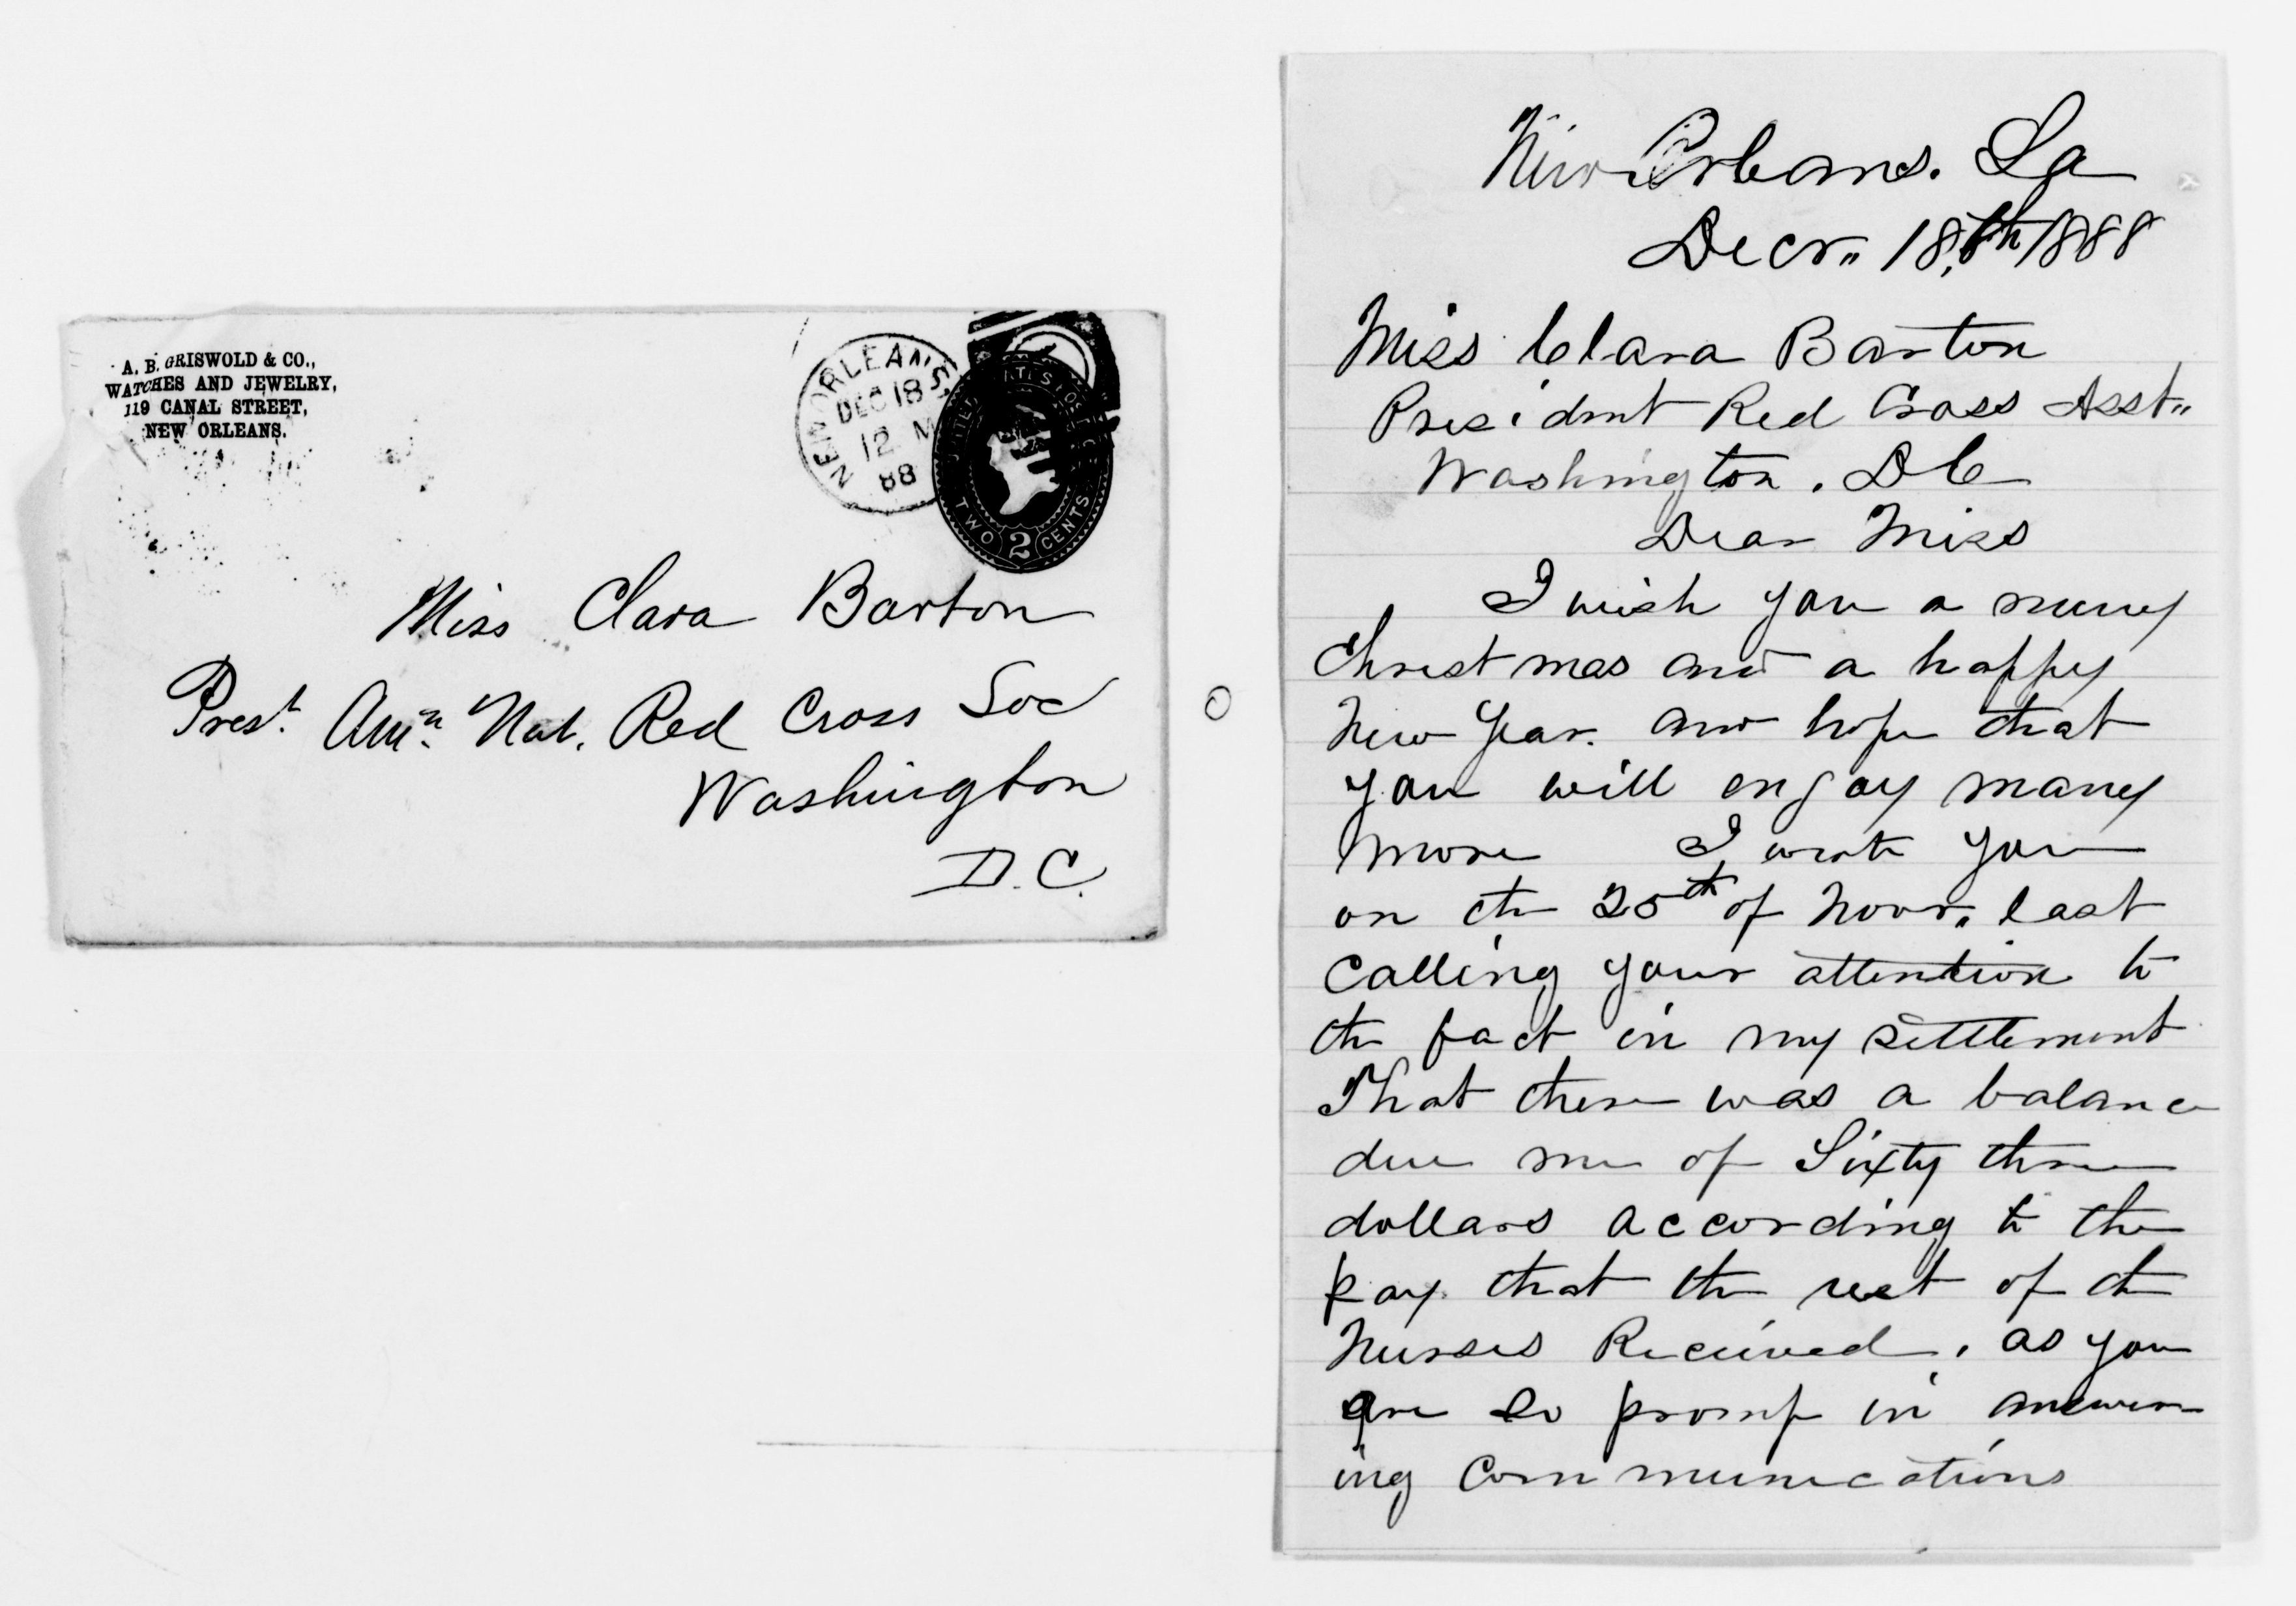 A. B. GRISWOLD & CO.,
WATCHES AND JEWELRY,
119 CANAL STREET,
NEW ORLEANS.
NEW ORLEANS
DEC 18
12 M
88
UNITED STATES POSTAGE
TWO 2 CENTS
Miss Clara Barton
Prest. Amn. Nat. Red Cross Soc
Washington
D.C.
New Orleans. La
Decr„ 18,th 1888
Miss Clara Barton
President Red Cross Asst„
Washington. DC
Dear Miss
I wish you a merry
Christmas and a happy
New Year. and hope that
you will enjoy many
more I wrote you
on the 25th of Novr„ last
Calling your attention to
the fact in my settlement
That there was a balance
due me of Sixty three
dollars according to the
pay that the rest of the
Nurses Received. as you
are so promp in answer
ing Communications